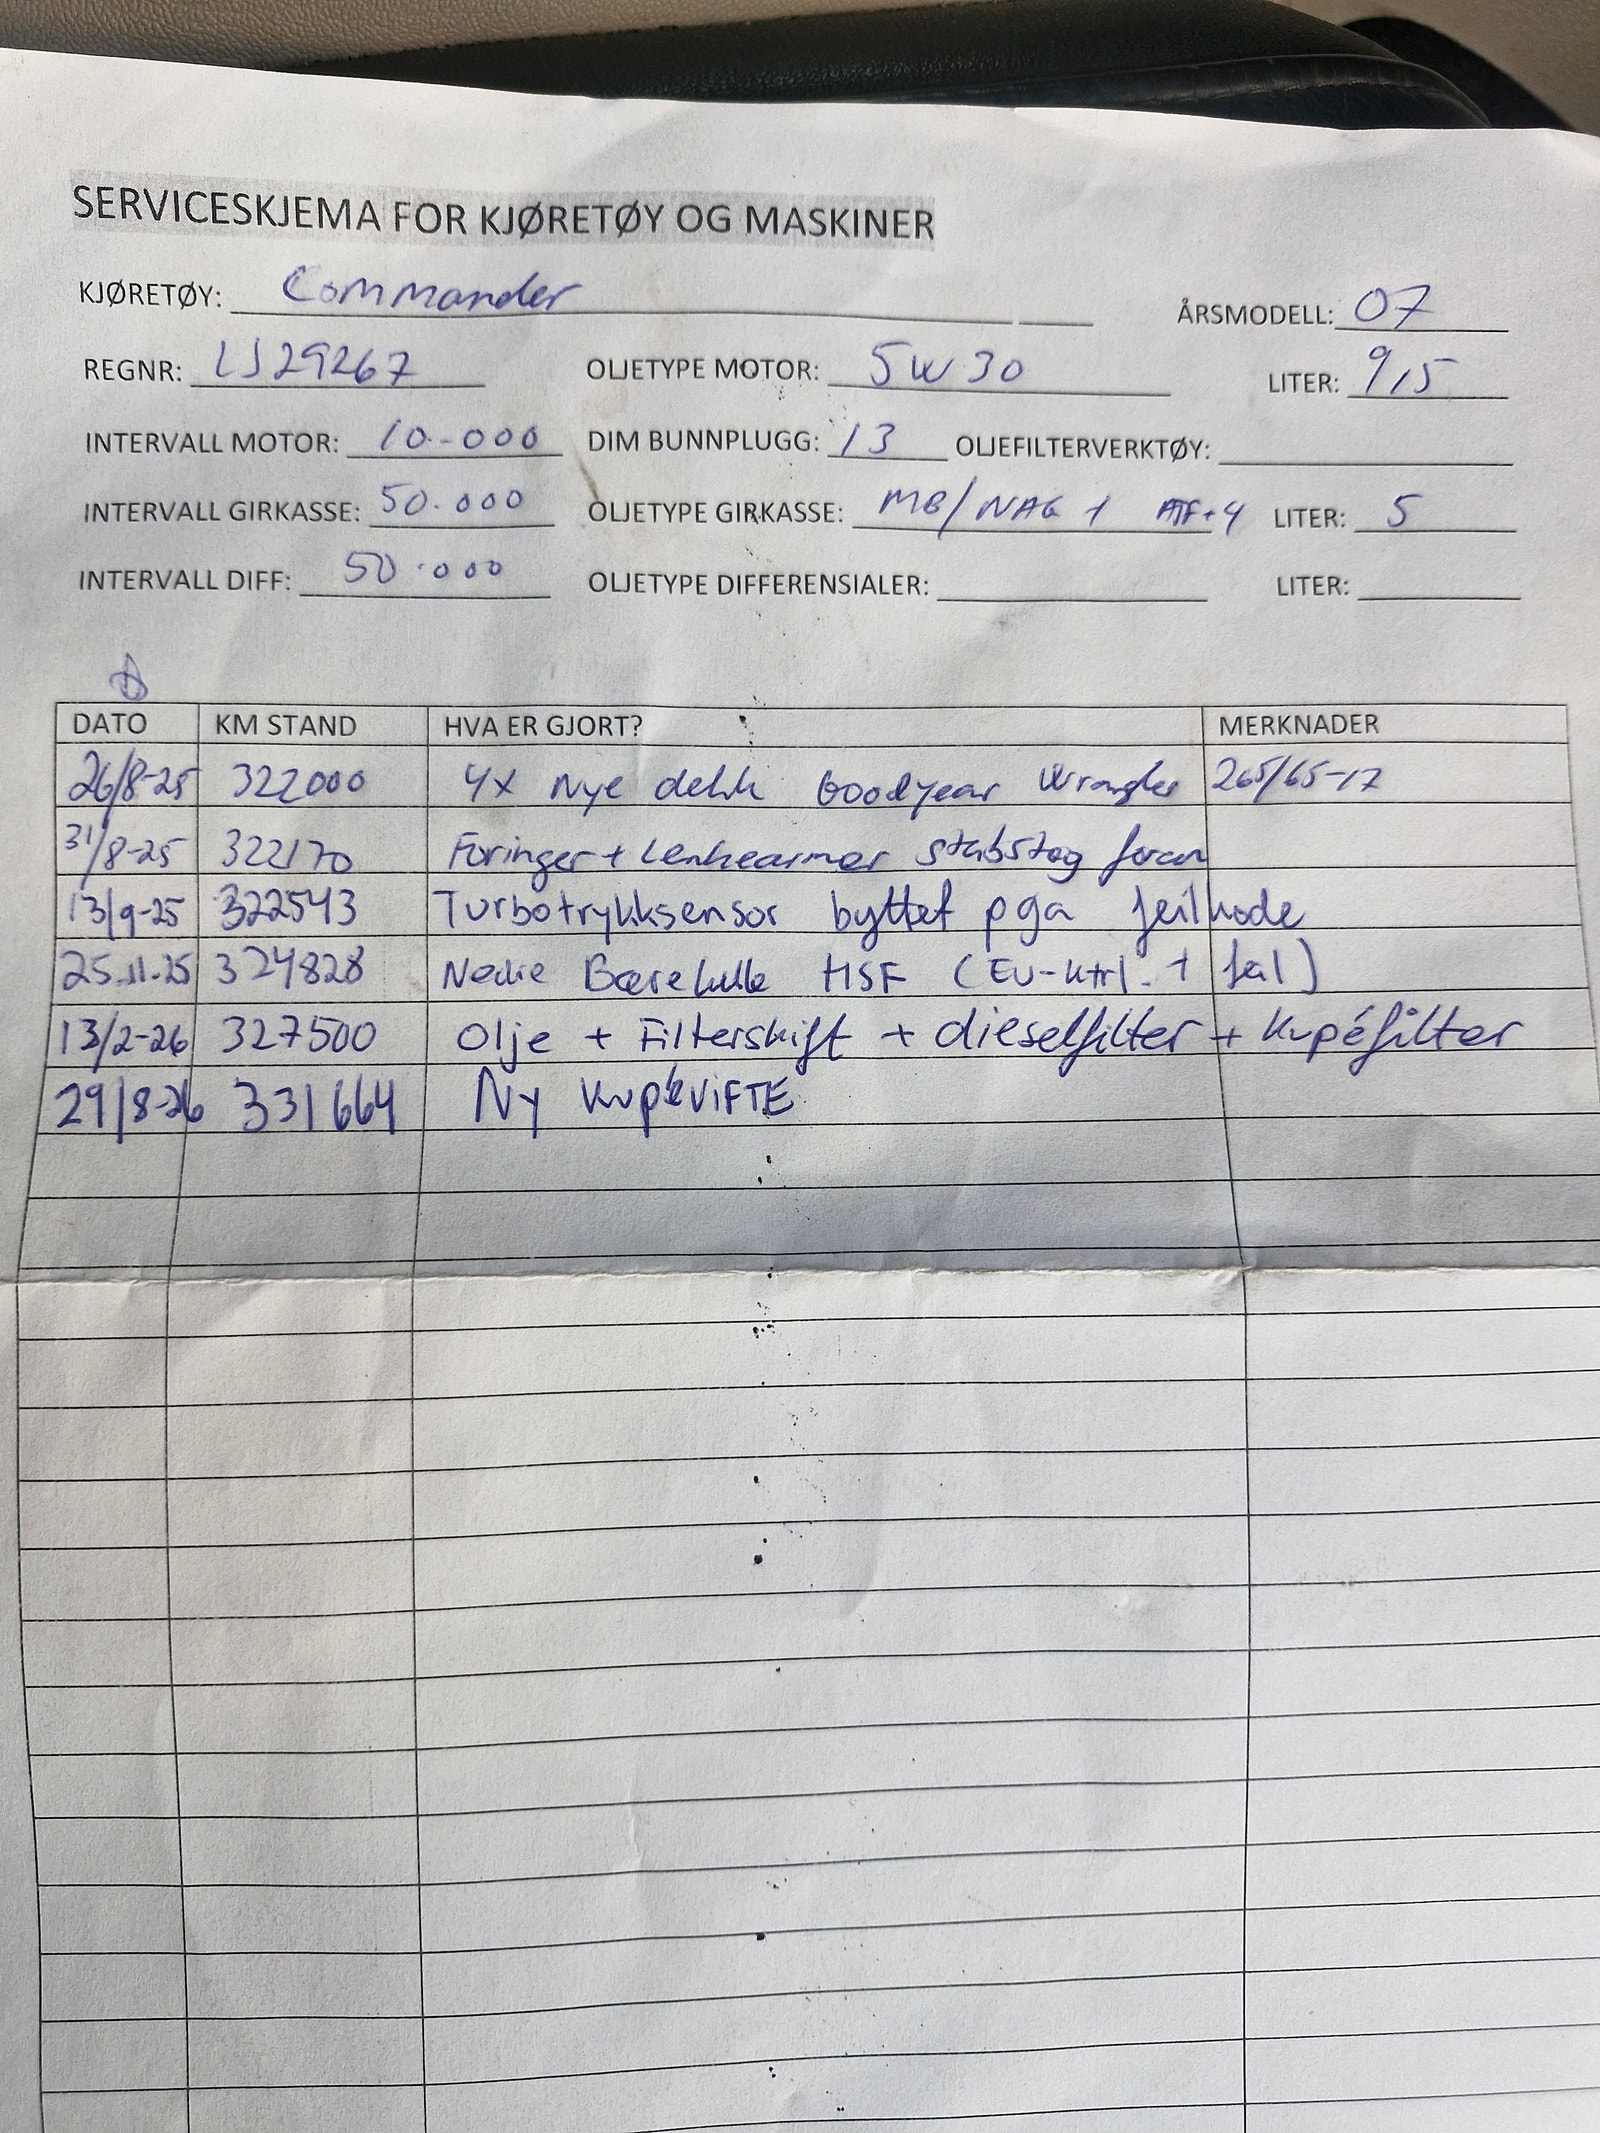 SERVICESKJEMA FOR KJØRETØY OG MASKINER
KJØRETØY: Commander ÅRSMODELL: 07
REGNR: LJ29267 OLJETYPE MOTOR: 5W30 LITER: 9,5
INTERVALL MOTOR: 10.000 DIM BUNNPLUGG: 13 OLJEFILTERVERKTØY:
INTERVALL GIRKASSE: 50.000 OLJETYPE GIRKASSE: MB/NAG 1 ATF+4 LITER: 5
INTERVALL DIFF: 50.000 OLJETYPE DIFFERENSIALER: LITER:
DATO KM STAND HVA ER GJORT? MERKNADER
26/8-25 322000 4x Nye dekk Goodyear Wrangler 265/65-17
31/8-25 322170 Foringer + Lenkearmer stabstag foran
13/9-25 322543 Turbotrykksensor byttet pga feilkode
25.11.25 324828 Nedre Bærekule HSF (EU-ktrl. +
13/2-26 327500 Olje + Filterskift + dieselfilter + Kupéfilter
29/8-26 331664 Ny KupéVIFTE